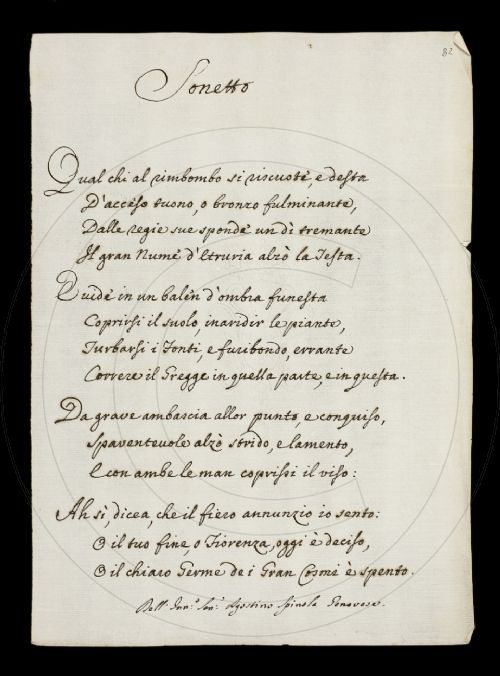 82
Sonetto
Qual chi al rimbombo si riscuote, e desta
D'acceso tuono, o bronzo fulminante,
Dalle regie sue sponde un dì tremante
Il gran Nume d'Etruria alzò la Testa.
E vide in un balen d'ombra funesta
Coprirsi il suolo, inaridir le piante,
Turbarsi i Fonti, e furibondo, errante
Correre il Gregge in quella parte, e in questa.
Da grave ambascia allor punto, e conquiso,
Spaventevole alzò strido, e lamento,
E con ambe le man coprissi il viso:
Ah sì, dicea, che il fiero annunzio io sento:
O il tuo fine, o Fiorenza, oggi è deciso,
O il chiaro Germe de i Gran Cosmi è spento.
Dell' Agostino Spinola Genovese.